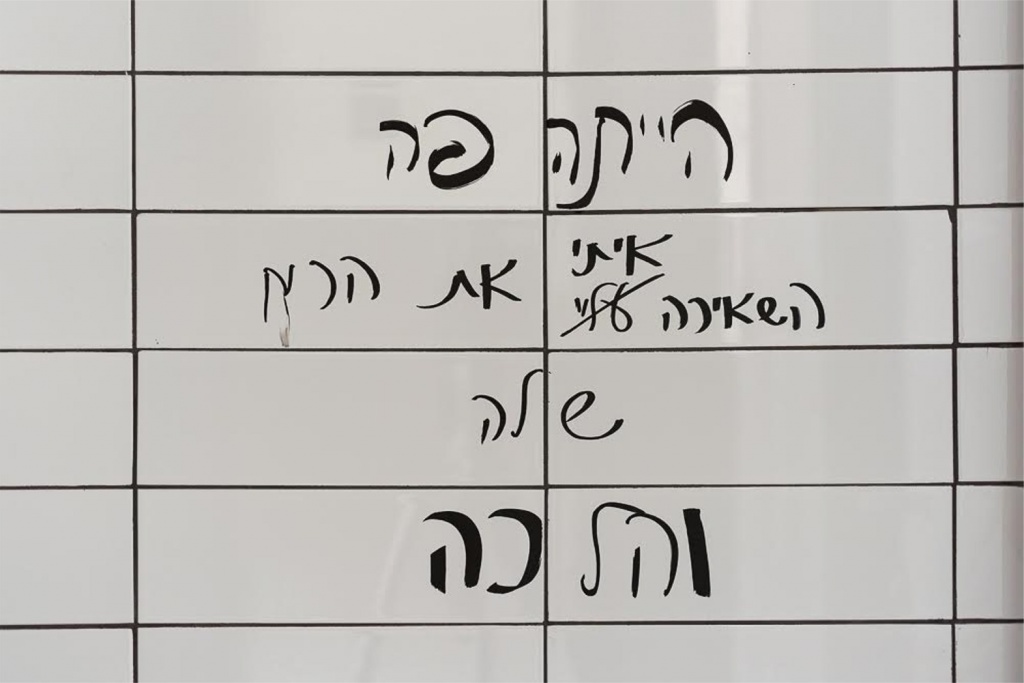 הייתה פה
השאירה עליי איתי את הריח
שלה
והלכה